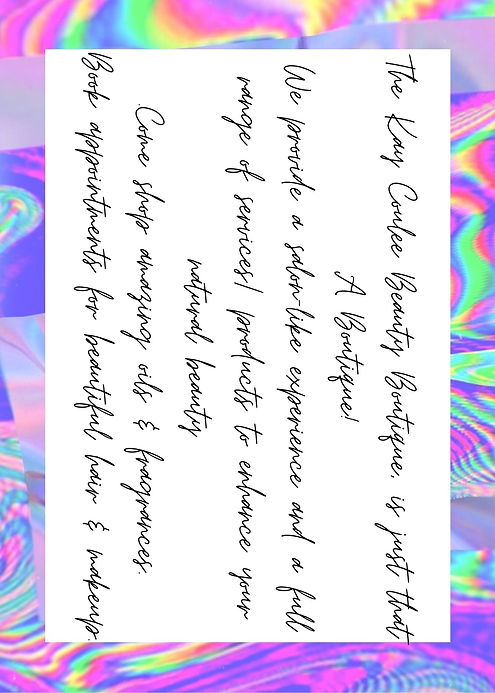 The Kay Coulee Beauty Boutique, is just that
A Boutique!
We provide a salon-like experience and a full
range of services/ products to enhance your
natural beauty
Come shop amazing oils & fragrances.
Book appointments for beautiful hair & makeup.